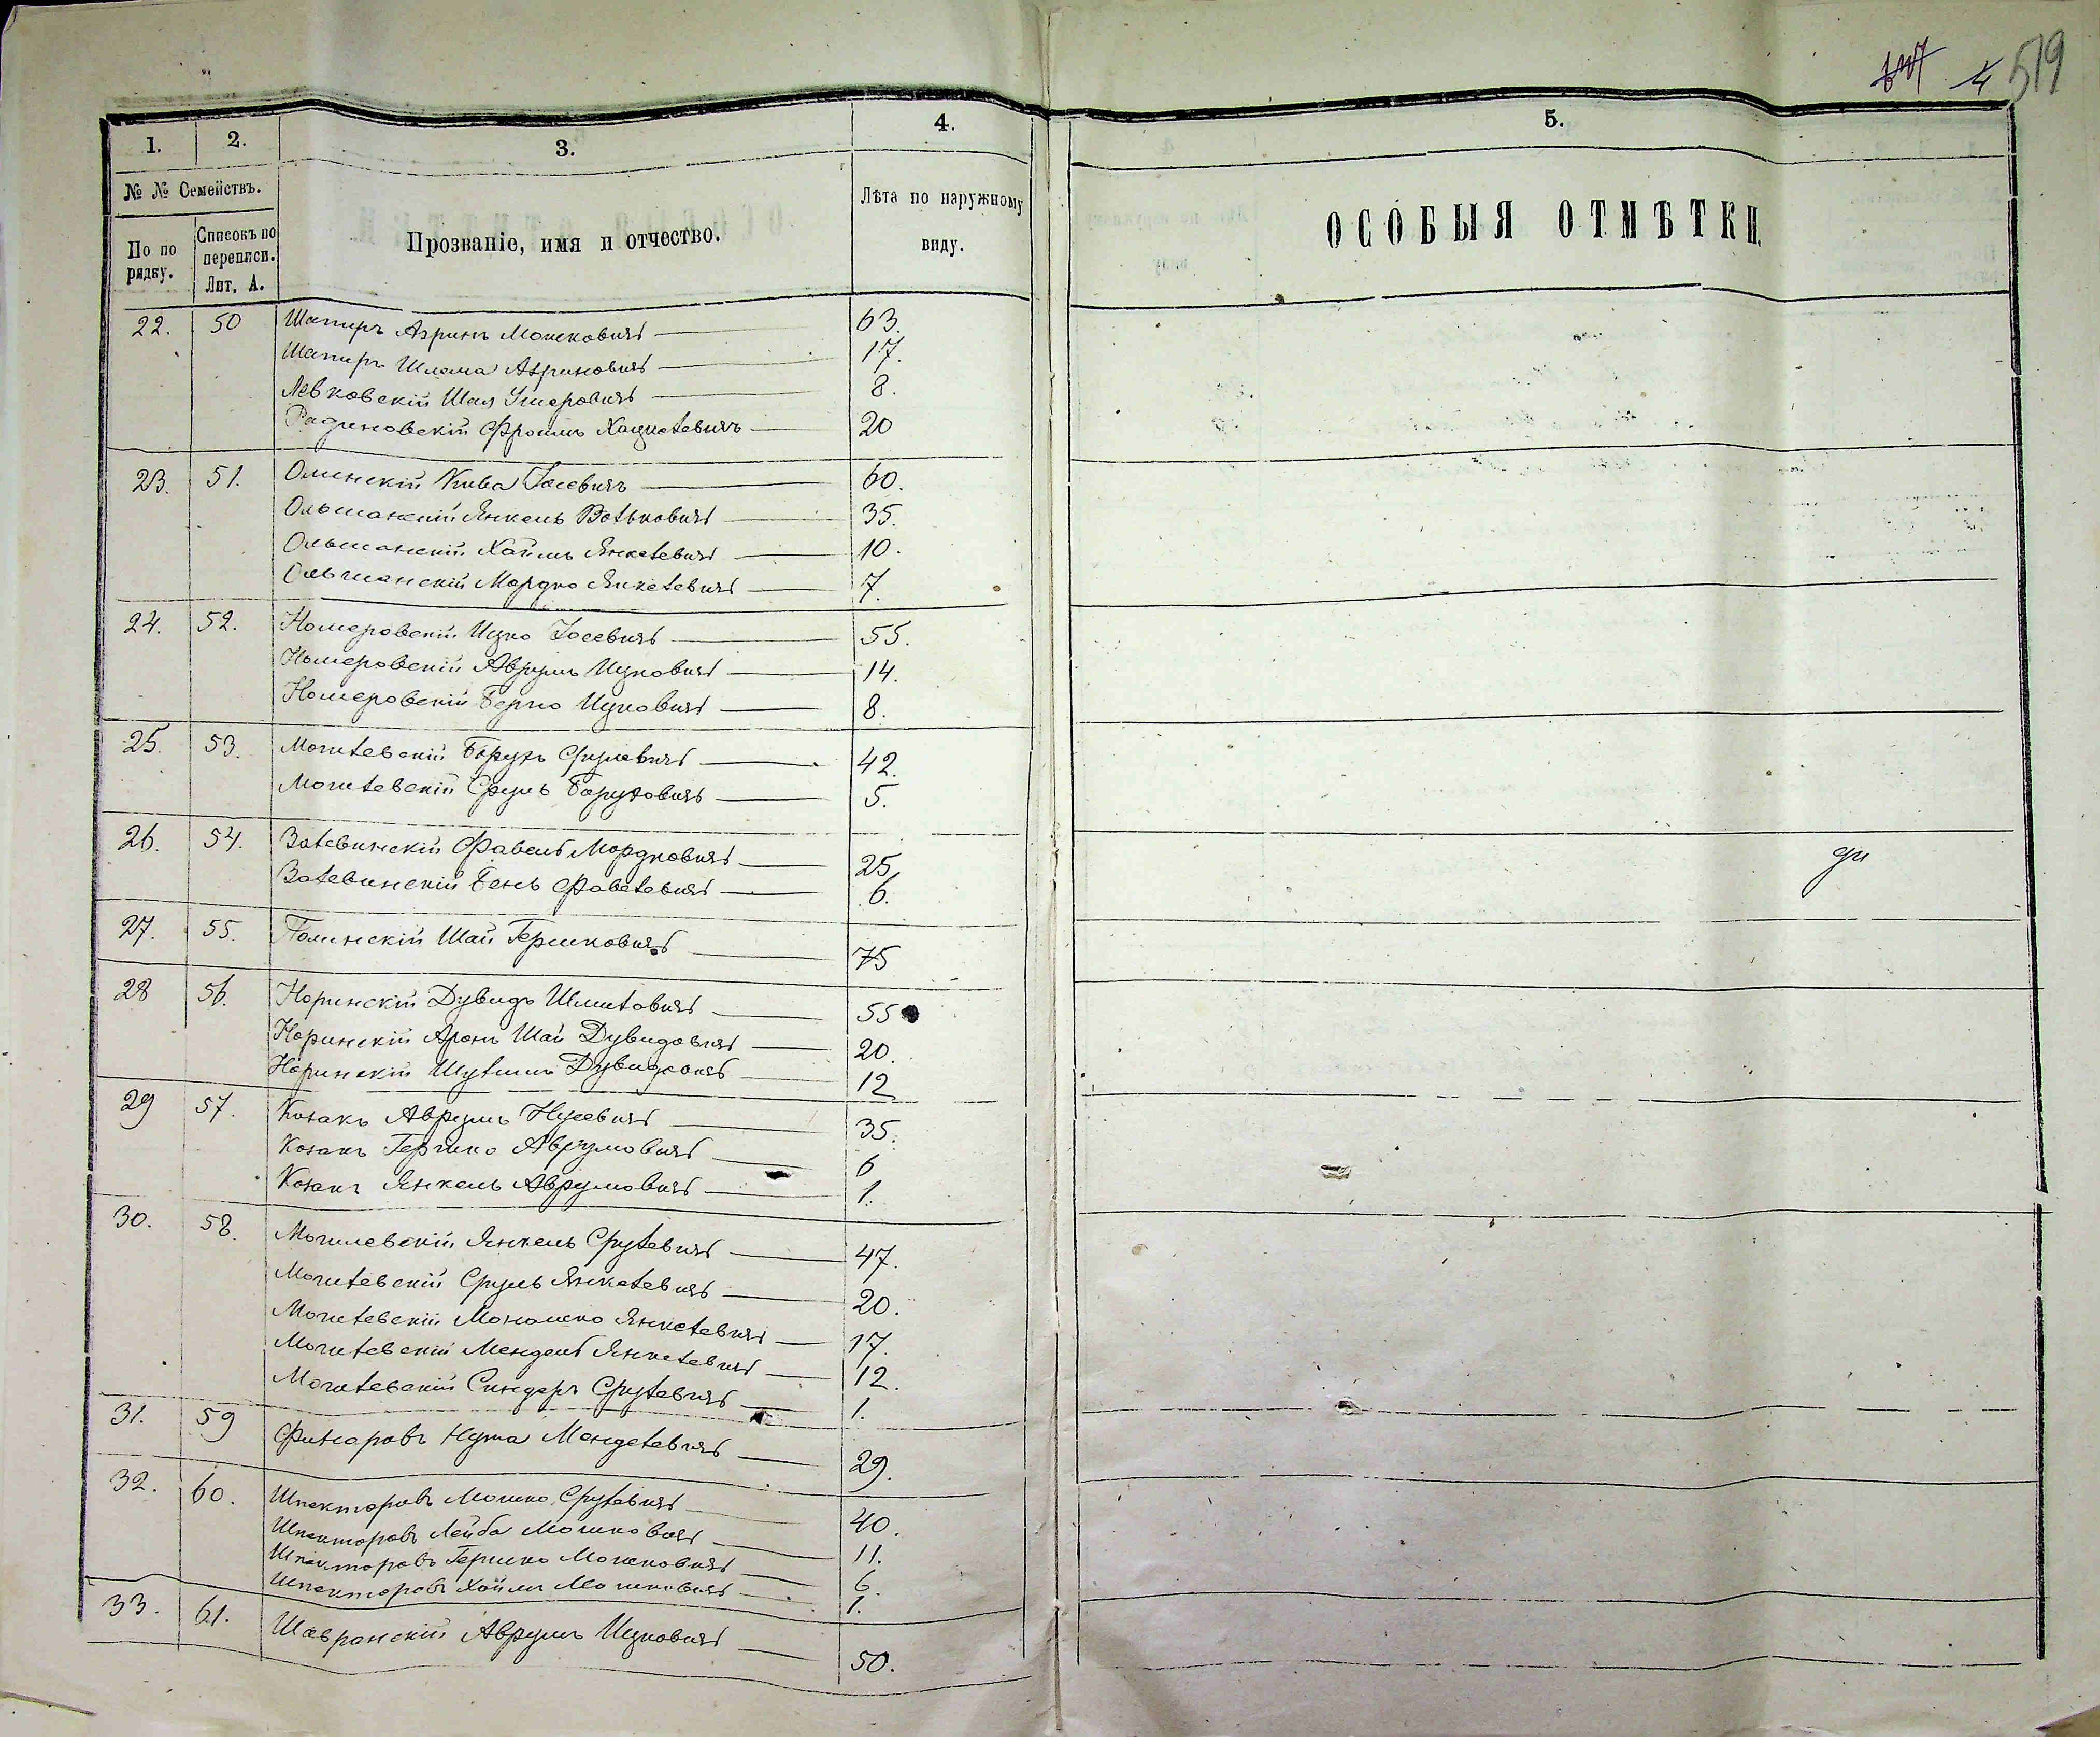 519
4
1.
2.
3.
4.
5.
№ № Семействъ.
По по рядку.
Списокъ по переписи. Лит. А.
Прозваніе, имя и отчество.
Лѣта по наружному виду.
ОСОБЫЯ ОТМѢТКИ.
22. 50 Шапиръ Азрилъ Мошковичъ 63.
Шапиръ Шлема Азриловичъ 17.
Левковскій Шая Ушеровичъ 8.
Радиновскій Фроимъ Хацкелевичъ 20
23. 51. Олинскій Кива Іосевичъ 60.
Ольшанскій Янкель Вольковичъ 35.
Ольшанскій Хаимъ Янкелевичъ 10.
Ольшанскій Мордко Янкелевичъ 7.
24. 52. Номеровскій Ицко Іосевичъ 55.
Номеровскій Аврумъ Ицковичъ 14.
Номеровскій Берко Ицковичъ 8.
25. 53. Могилевскій Борухъ Срулевичъ 42.
Могилевскій Сруль Боруховичъ 5.
26. 54. Залевинскій Фавель Мордковичъ 25
Залевинскій Бень Фавелевичъ 6.
27. 55. Полинскій Шай Гершковичъ 75
28 56. Норинскій Дувидъ Шмиловичъ 55
Норинскій Аронъ Шай Дувидовичъ 20.
Норинскій Шулимъ Дувидовичъ 12
29 57. Козакъ Аврумъ Нусевичъ 35.
Козакъ Гершко Аврумовичъ 6
Козакъ Янкель Аврумовичъ 1.
30. 58. Могилевскій Янкель Срулевичъ 47.
Могилевскій Сруль Янкелевичъ 20.
Могилевскій Монашко Янкелевичъ 17.
Могилевскій Мендель Янкелевичъ 12.
Могилевскій Сендеръ Срулевичъ 1.
31. 59 Финаровъ Нута Менделевичъ 29.
32. 60. Шпекторовъ Мошко Срулевичъ 40.
Шпекторовъ Лейба Мошковичъ 11.
Шпекторовъ Гершко Мошковичъ 6.
Шпекторовъ Хаимъ Мошковичъ 1.
33. 61. Шавранскій Аврумъ Ицковичъ 50.